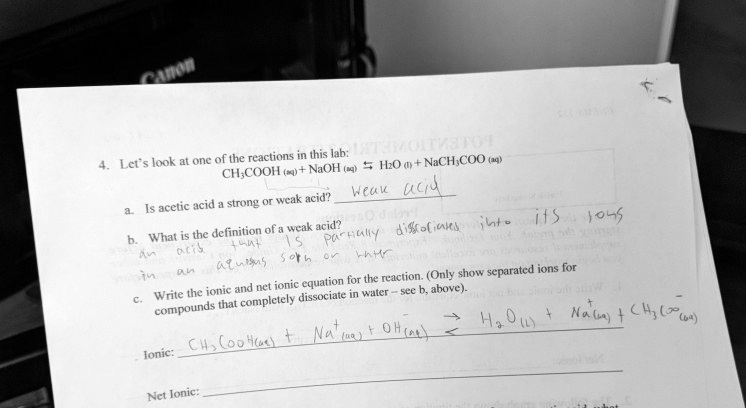 Canon
4. Let's look at one of the reactions in this lab:
CH₃COOH (aq) + NaOH (aq) ⇆ H₂O (l) + NaCH₃COO (aq)
a. Is acetic acid a strong or weak acid? Weak acid
b. What is the definition of a weak acid?
an acid that is partially into its ions
in an aqueous soln or water
c. Write the ionic and net ionic equation for the reaction. (Only show separated ions for
compounds that completely dissociate in water – see b, above).
Ionic: CH₃COOH(aq) + Na⁺(aq) + OH⁻(aq) ⇄ H₂O(l) + Na⁺(aq) + CH₃COO⁻(aq)
Net Ionic: